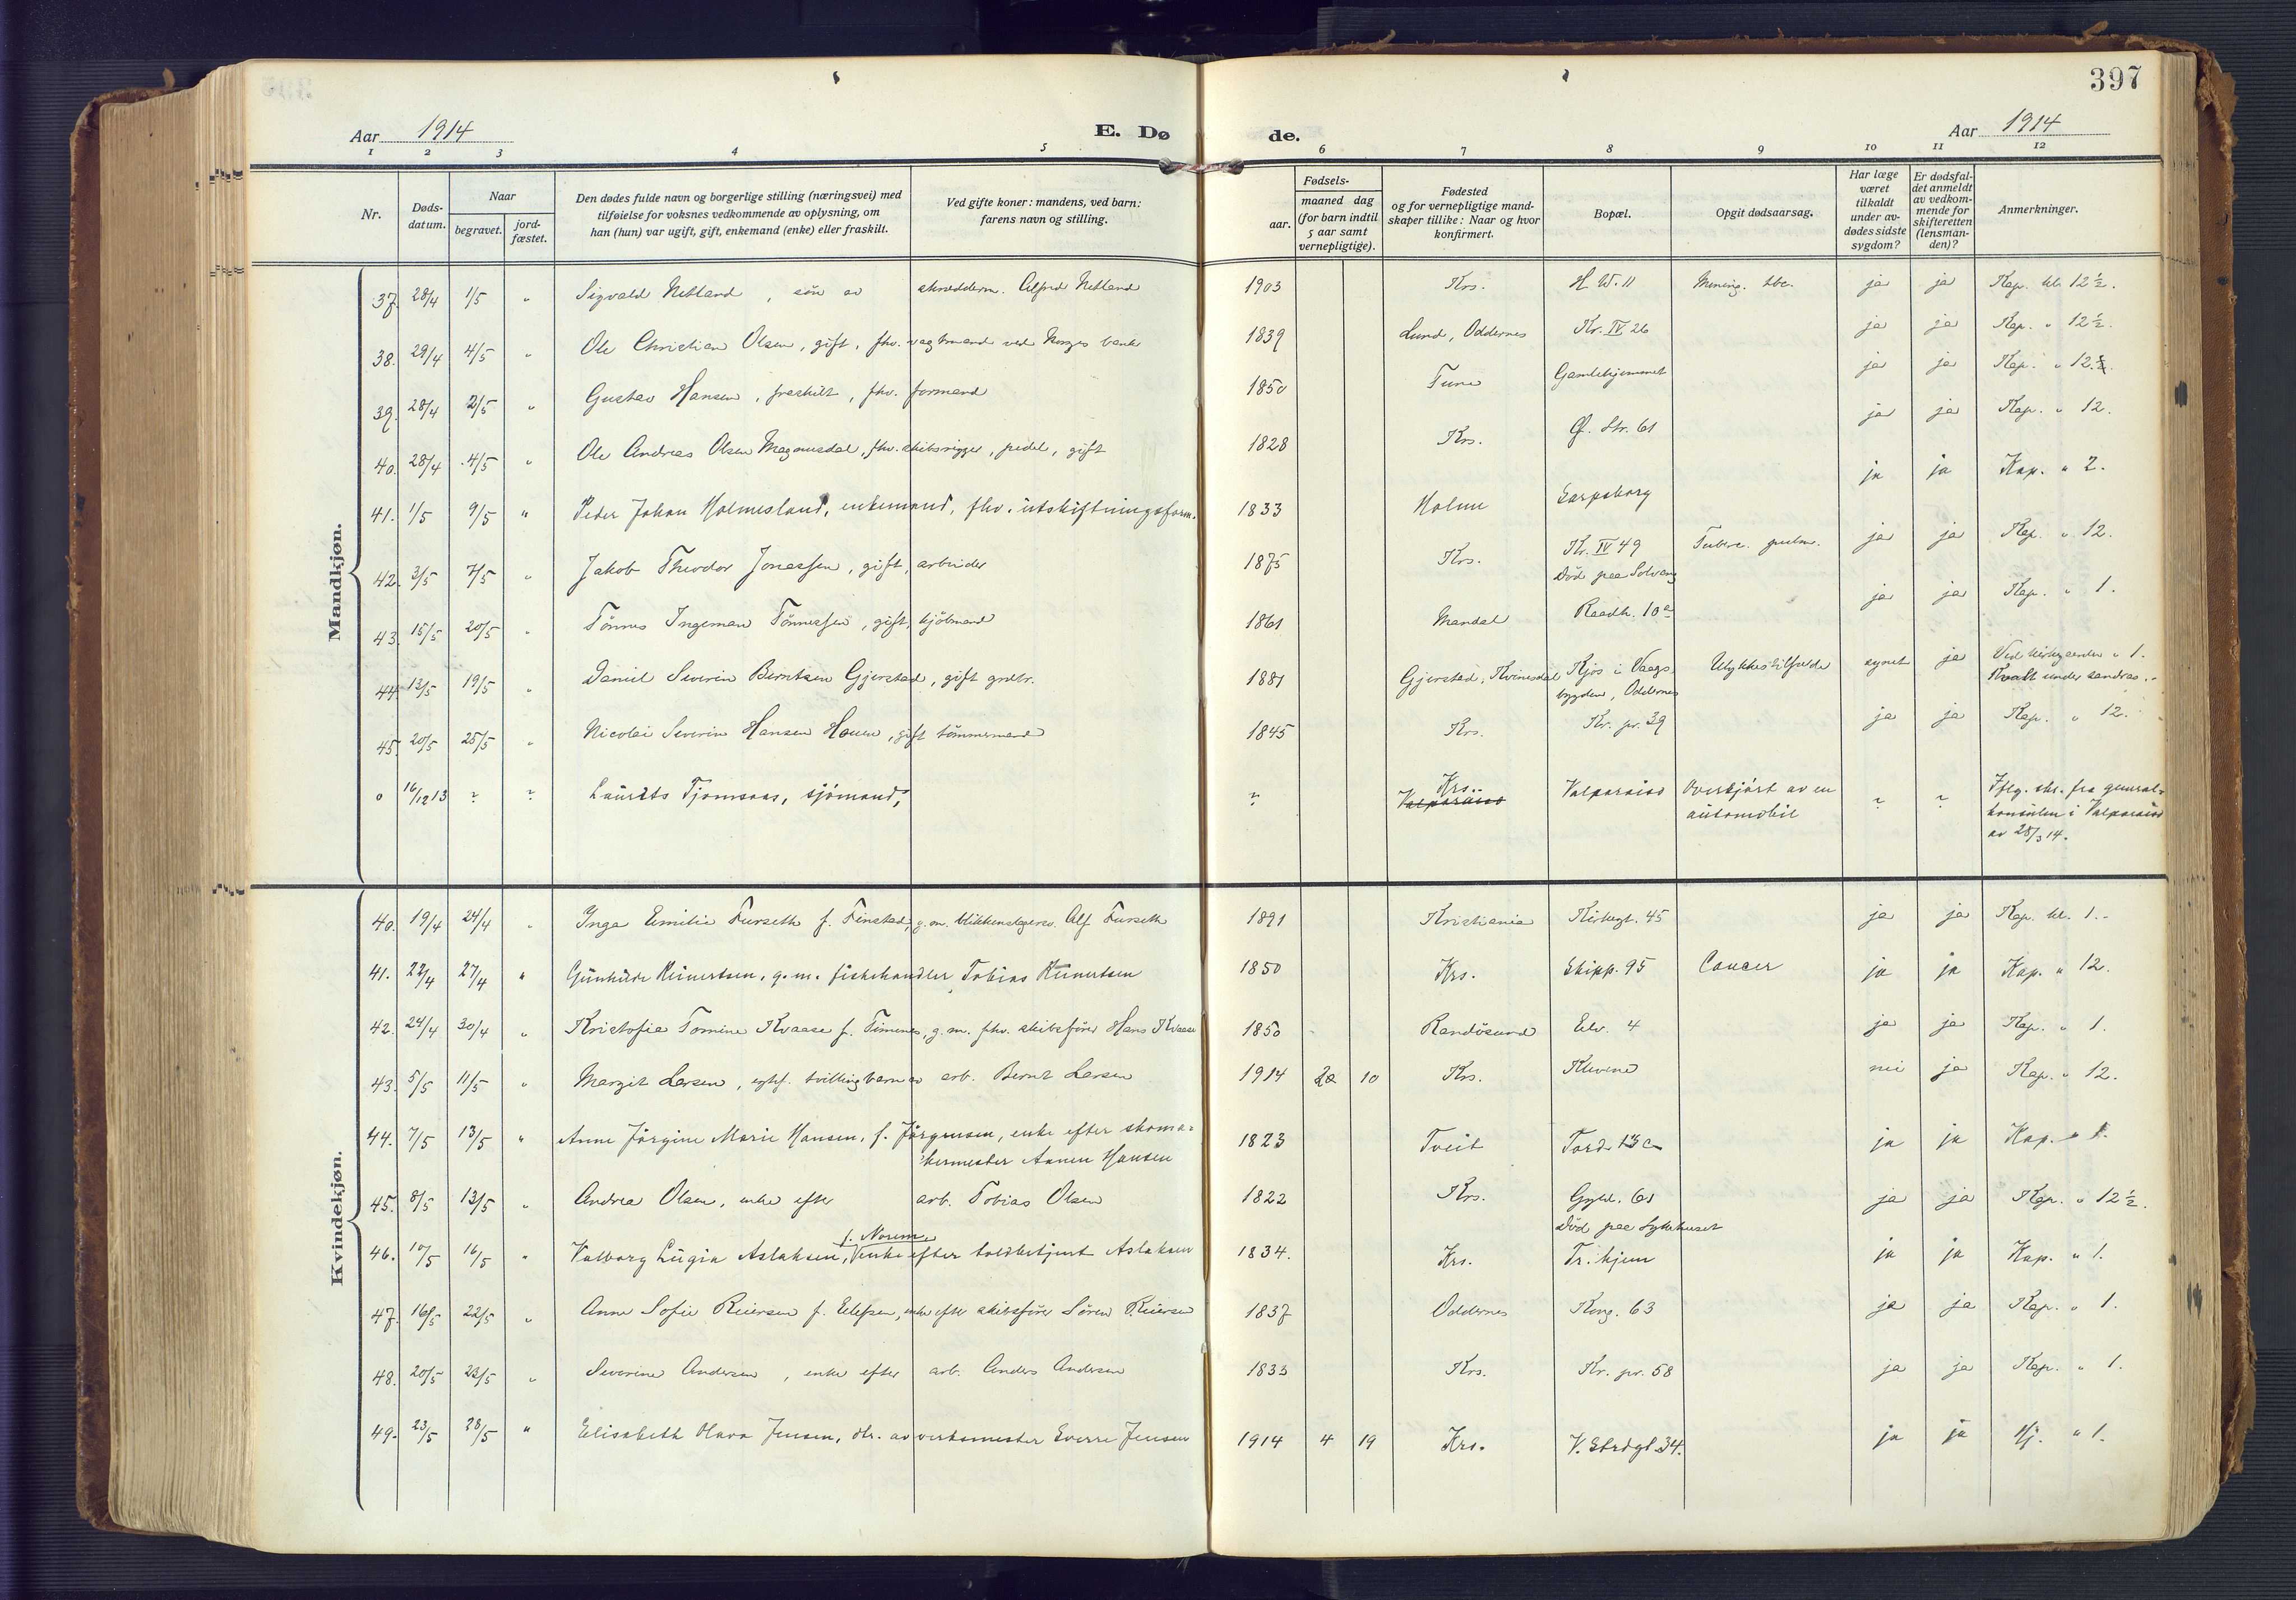 397
Aar 1914
E. Dø
de.
Aar 1914
1 2 3 4 5 6 7 8 9 10 11 12
Nr.
Døds-
datum.
Naar
begravet.
jord-
fæstet.
Den dødes fulde navn og borgerlige stilling (næringsvei) med
tilføielse for voksnes vedkommende av oplysning, om
han (hun) var ugift, gift, enkemand (enke) eller fraskilt.
Ved gifte koner: mandens, ved barn:
farens navn og stilling.
Fødsels-
aar.
maaned dag
(for barn indtil
5 aar samt
vernepligtige).
Fødested
og for vernepligtige mand-
skaper tillike: Naar og hvor
konfirmert.
Bopæl.
Opgit dødsaarsag.
Har læge
været
tilkaldt
under av-
dødes sidste
sygdom?
Er dødsfal-
det anmeldt
av vedkom-
mende for
skifteretten
(lensman-
den)?
Anmerkninger.
Mandkjøn.
37. 28/4 1/5 " Sigvald Netland, søn av skræddern. Alfred Netland 1903 Krs. H. W. 11 Mening. tbc. ja ja Kap. kl. 12 1/2.
38. 29/4 4/5 " Ole Christian Olsen, gift, fhv. vagtmand ved Norges bank 1839 Lund, Oddernes Kr. IV 26 ja ja Kap. " 12 1/2.
39. 28/4 2/5 " Gustav Hansen, fraskilt, fhv. formand 1850 Tune Gamlehjemmet ja ja Kap. " 12.
40. 28/4 4/5 " Ole Andreas Olsen Magnusdal, fhv. skibsrigger, pedel, gift 1828 Krs. Ø. Str. 61 ja ja Kap. " 12.
41. 1/5 9/5 " Peder Johan Holmesland, enkemand, fhv. utskiftningsform. 1833 Holme Sarpsborg ja ja Kap. " 2.
42. 3/5 7/5 " Jakob Theodor Jonassen, gift, arbeider 1875 Krs. Kr. IV 49 Tuberc. pulm. ja ja Kap. " 12.
Död paa Solvang
43. 15/5 20/5 " Tönnes Ingeman Tönnessen, gift, kjöbmand 1861 Mandal Raadh. 10a ja ja Kap. " 1.
44. 13/5 19/5 " Daniel Severin Berntsen Gjerstad, gift grdbr. 1881 Gjerstad, Kvinesdal Kjos i Vaags- Ulykkestilfælde synet ja Ved kirkegaarden " 1.
bygden, Oddernes Kvalt under sandras.
45. 20/5 25/5 " Nicolai Severin Hansen Hauen, gift tömmermand 1845 Krs. Kr. pr. 39 ja ja Kap. " 12.
o 16/12 13 ? ? Laurits Tjomsaas, sjömand, ? Krs. Valparaiso Overkjört av en ? ? Iflg. skr. fra general-
Valparaiso automobil konsulen i Valparaiso
av 28/3 14.
Kvindekjøn.
40. 19/4 24/4 " Inga Emilie Furseth f. Finstad, g. m. blikkenslagersv. Alf Furseth 1891 Kristiania Kirkegt. 45 ja ja Kap. kl. 1.
41. 22/4 27/4 " Gunhilde Reinertsen, g. m. fiskehandler Tobias Reinertsen 1850 Krs. Skipp. 95 Cancer ja ja Kap. " 12.
42. 24/4 30/4 " Kristofia Tomine Kvaase f. Timenes, g. m. fhv. skibsförer Hans Kvaase 1850 Randösund Elv. 4 ja ja Kap. " 1.
43. 5/5 11/5 " Margit Larsen, egtef. tvillingbarn av arb. Bernt Larsen 1914 10 Krs. Klevene nei ja Kap. " 12.
44. 7/5 13/5 " Anne Jörgine Marie Hansen, f. Jörgensen, enke efter skoma- 1823 Tveit Tord. 13 c ja ja Kap. " 1.
kermester Hansen
45. 8/5 13/5 " Andrea Olsen, enke efter arb. Tobias Olsen 1822 Krs. Gyld. 61 ja ja Kap. " 12 1/2.
Död paa Sykehuset
f. Norem
46. 10/5 16/5 " Valborg Lugia Aslaksen, enke efter toldbetjent Aslaksen 1834. Krs. Tr. hjem ja ja Kap. " 1.
47. 16/5 22/5 " Anne Sofie Reiersen f. Eilefsen, enke efter skibsförer Sören Reiersen 1837 Oddernes Kong. 63 ja ja Kap. " 1.
48. 20/5 23/5 " Severine Andersen, enke efter arb. Anders Andersen 1833 Krs. Kr. pr. 58 ja ja Kap. " 1.
49. 23/5 28/5 " Elisabeth Olava Jensen, dtr. av verksmester Sverre Jensen 1914 4 19 Krs. V. Strdgt. 34. ja ja Hj. " 1.